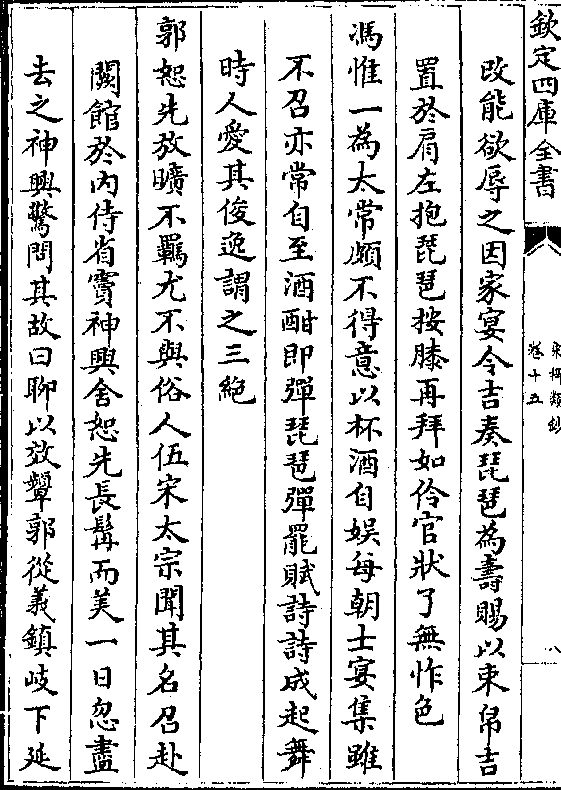 欽定四庫全書
宋稗類鈔
卷十五
八
改能欲辱之因家宴令吉奏琵琶為壽賜以束帛吉
置於肩左抱琵琶按膝再拜如伶官狀了無怍色
馮惟一為太常頗不得意以杯酒自娯每朝士宴集雖
不召亦常自至酒酣即彈琵琶彈罷賦詩詩成起舞
時人愛其俊逸謂之三絶
郭恕先放曠不羈尤不與俗人伍宋太宗聞其名召赴
闕館於内侍省竇神興舍恕先長髯而美一日忽盡
去之神興驚問其故曰聊以效顰郭從義鎮岐下延